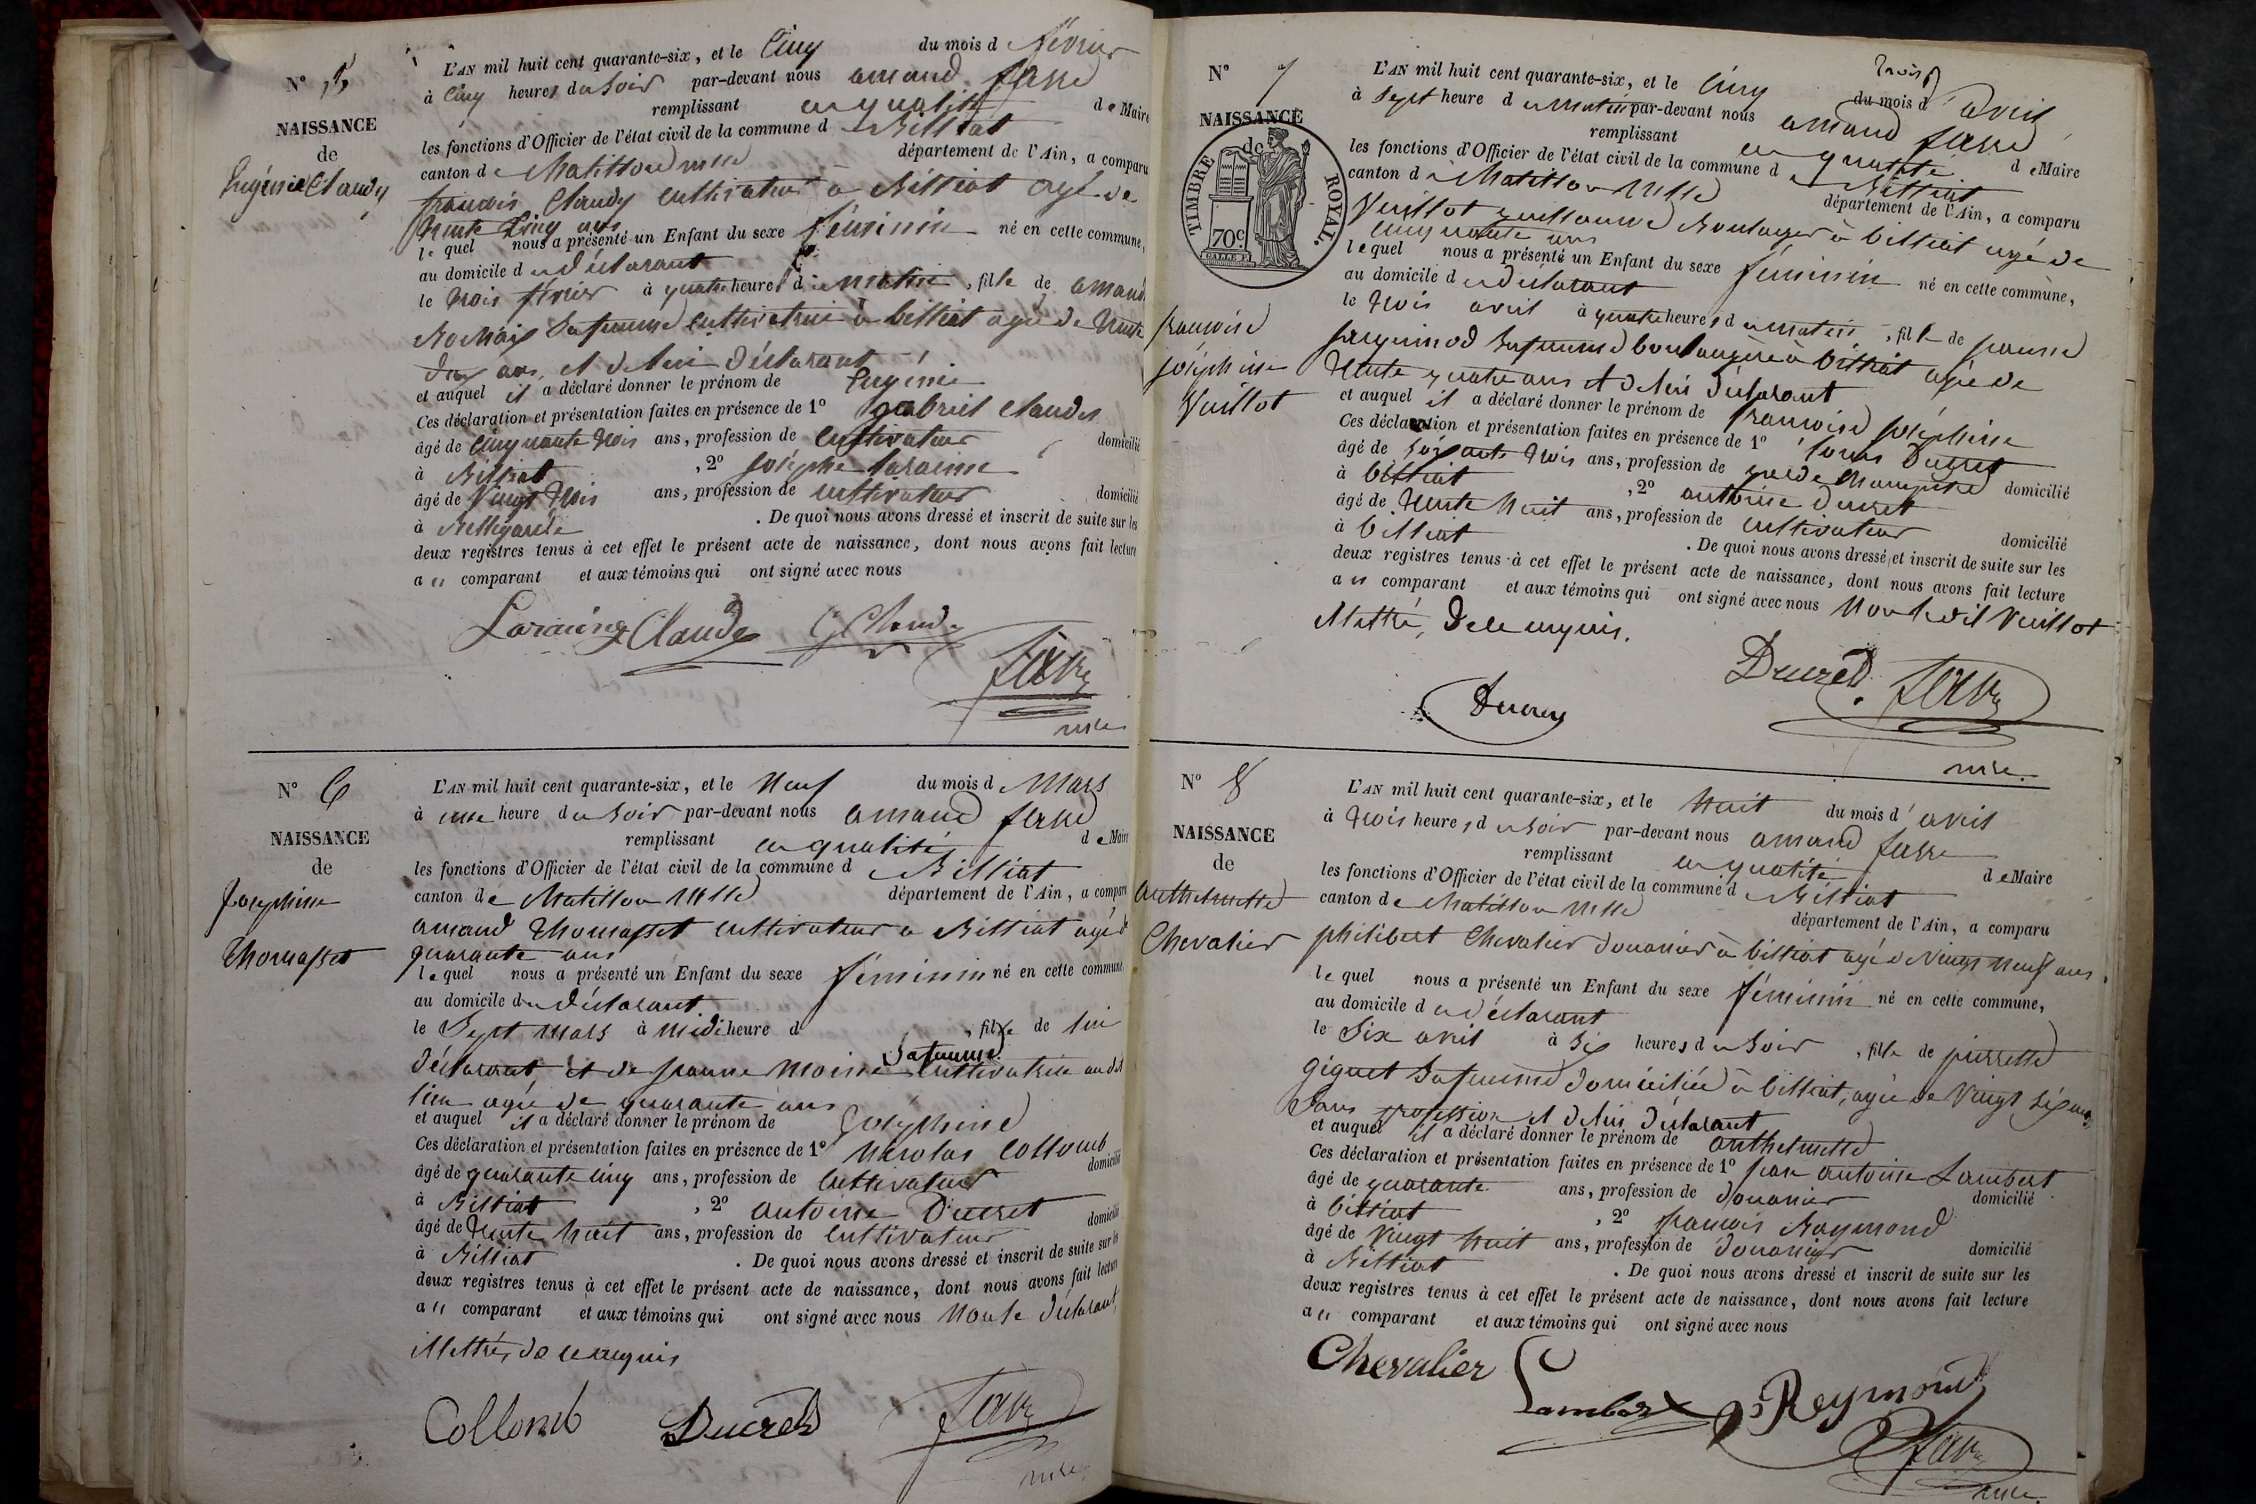 N° 5
NAISSANCE
de
Eugénie Claudy
L'AN mil huit cent quarante-six, et le Cinq du mois de février
à Cinq heures du Soir par-devant nous amand favre
remplissant en qualité de Maire
les fonctions d'Officier de l'état civil de la commune de Billiat
canton de Chatillon département de l'Ain, a comparu
francois Claudy cultivateur à Billiat agé de
trente Cinq ans
le quel nous a présenté un Enfant du sexe féminin né en cette commune,
au domicile du déclarant
le trois février à quatre heures du matin, fille de
sa femme cultivatrice à billiat agée de trente
deux ans et de lui déclarant
et auquel il a déclaré donner le prénom de Eugénie
Ces déclaration et présentation faites en présence de 1° gabriel Claudy
âgé de Cinquante trois ans, profession de Cultivateur domicilié
à Billiat, 2° Joseph
âgé de Vingt trois ans, profession de cultivateur domicilié
à Bellegarde. De quoi nous avons dressé et inscrit de suite sur les
deux registres tenus à cet effet le présent acte de naissance, dont nous avons fait lecture
au comparant et aux témoins qui ont signé avec nous
Claudy
favre
N° 6
NAISSANCE
de
Josephine
Thomasset
L'AN mil huit cent quarante-six, et le Neuf du mois de Mars
à une heure du Soir par-devant nous amand favre
remplissant en qualité de Maire
les fonctions d'Officier de l'état civil de la commune de Billiat
canton de Chatillon département de l'Ain, a comparu
amand Thomasset cultivateur a Billiat agé de
quarante ans
le quel nous a présenté un Enfant du sexe féminin né en cette commune
au domicile du déclarant
le Sept mars à midi heure d, fille de lui
Sa femme
déclarant, et de Jeanne Moine cultivatrice au dit
lieu agée de quarante ans
et auquel il a déclaré donner le prénom de Josephine
Ces déclaration et présentation faites en présence de 1° Nicolas Collomb
âgé de quarante cinq ans, profession de Cultivateur domicilié
à Billiat, 2° antoine Ducret
âgé de trente huit ans, profession de Cultivateur domicilié
à Billiat. De quoi nous avons dressé et inscrit de suite sur les
deux registres tenus à cet effet le présent acte de naissance, dont nous avons fait lecture
au comparant et aux témoins qui ont signé avec nous Non le déclarant
illettré, de ce requis
Collomb Ducret favre
N° 7
NAISSANCE
de
TIMBRE ROYAL.
70c
francoise
joséphine
Vuillot
trois
L'AN mil huit cent quarante-six, et le Cinq du mois d'avril
à Sept heure du matin par-devant nous amand favre
remplissant en qualité de Maire
les fonctions d'Officier de l'état civil de la commune de Billiat
canton de Chatillon département de l'Ain, a comparu
Vuillot guillaume Boulanger à billiat agé de
cinquante ans
lequel nous a présenté un Enfant du sexe féminin né en cette commune,
au domicile du déclarant
le trois avril à quatre heures du matin, fille de
Jacquinod Sa femme boulangère à billiat agée de
trente quatre ans et de lui déclarant
et auquel il a déclaré donner le prénom de francoise joséphine
Ces déclaration et présentation faites en présence de 1° Ducret
âgé de Soixante trois ans, profession de garde champêtre domicilié
à billiat, 2° antoine Ducret
âgé de trente huit ans, profession de cultivateur domicilié
à billiat. De quoi nous avons dressé et inscrit de suite sur les
deux registres tenus à cet effet le présent acte de naissance, dont nous avons fait lecture
au comparant et aux témoins qui ont signé avec nous Non le dit Vuillot
illettré, de ce requis.
Ducret favre
Ducret
N° 8
NAISSANCE
de
Anthelmette
Chevalier
L'AN mil huit cent quarante-six, et le huit du mois d'avril
à trois heures du Soir par-devant nous amand favre
remplissant en qualité de Maire
les fonctions d'Officier de l'état civil de la commune de Billiat
canton de Chatillon département de l'Ain, a comparu
philibert Chevalier douanier à billiat agé de Vingt neuf ans
le quel nous a présenté un Enfant du sexe féminin né en cette commune,
au domicile du déclarant
le Six avril à Six heures du Soir, fille de pierrette
giguet Sa femme domiciliée à billiat, agée de Vingt Six ans,
Sans profession et de lui déclarant
et auquel il a déclaré donner le prénom de anthelmette
Ces déclaration et présentation faites en présence de 1° jean antoine Lambert
âgé de quarante ans, profession de douanier domicilié
à billiat, 2° francois Raymond
âgé de Vingt huit ans, profession de douanier domicilié
à Billiat. De quoi nous avons dressé et inscrit de suite sur les
deux registres tenus à cet effet le présent acte de naissance, dont nous avons fait lecture
au comparant et aux témoins qui ont signé avec nous
Chevalier
Lambert Reymond
favre